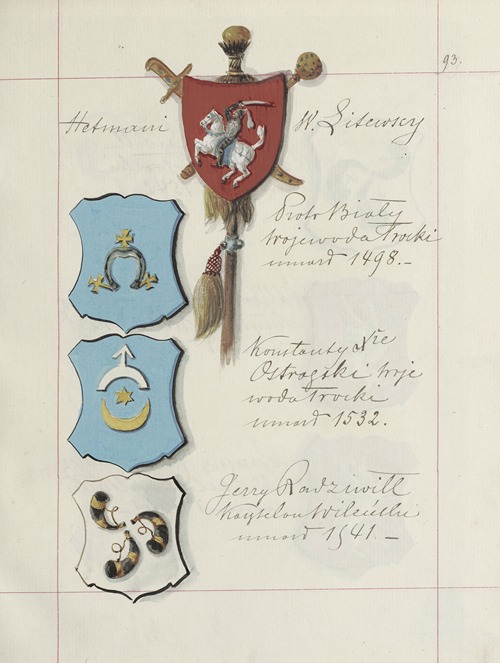 93.
Hetmani W. Litewscy
Piotr Biały
wojewoda trocki
umarł 1498.-
Konstanty Xże
Ostrogski woje
woda trocki
umarł 1532.
Jerzy Radziwiłł
Kasztelan wileński
umarł 1541.-